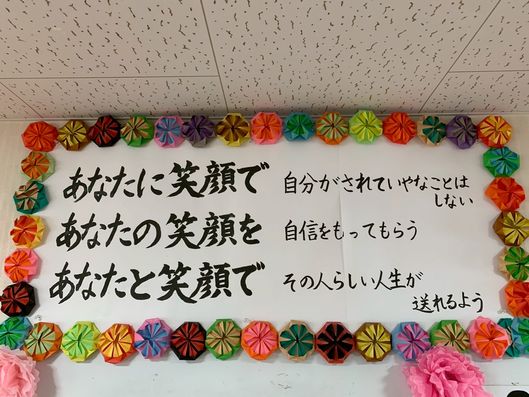 あなたに笑顔で 自分がされていやなことは
しない
あなたの笑顔を 自信をもってもらう
あなたと笑顔で その人らしい人生が
送れるよう